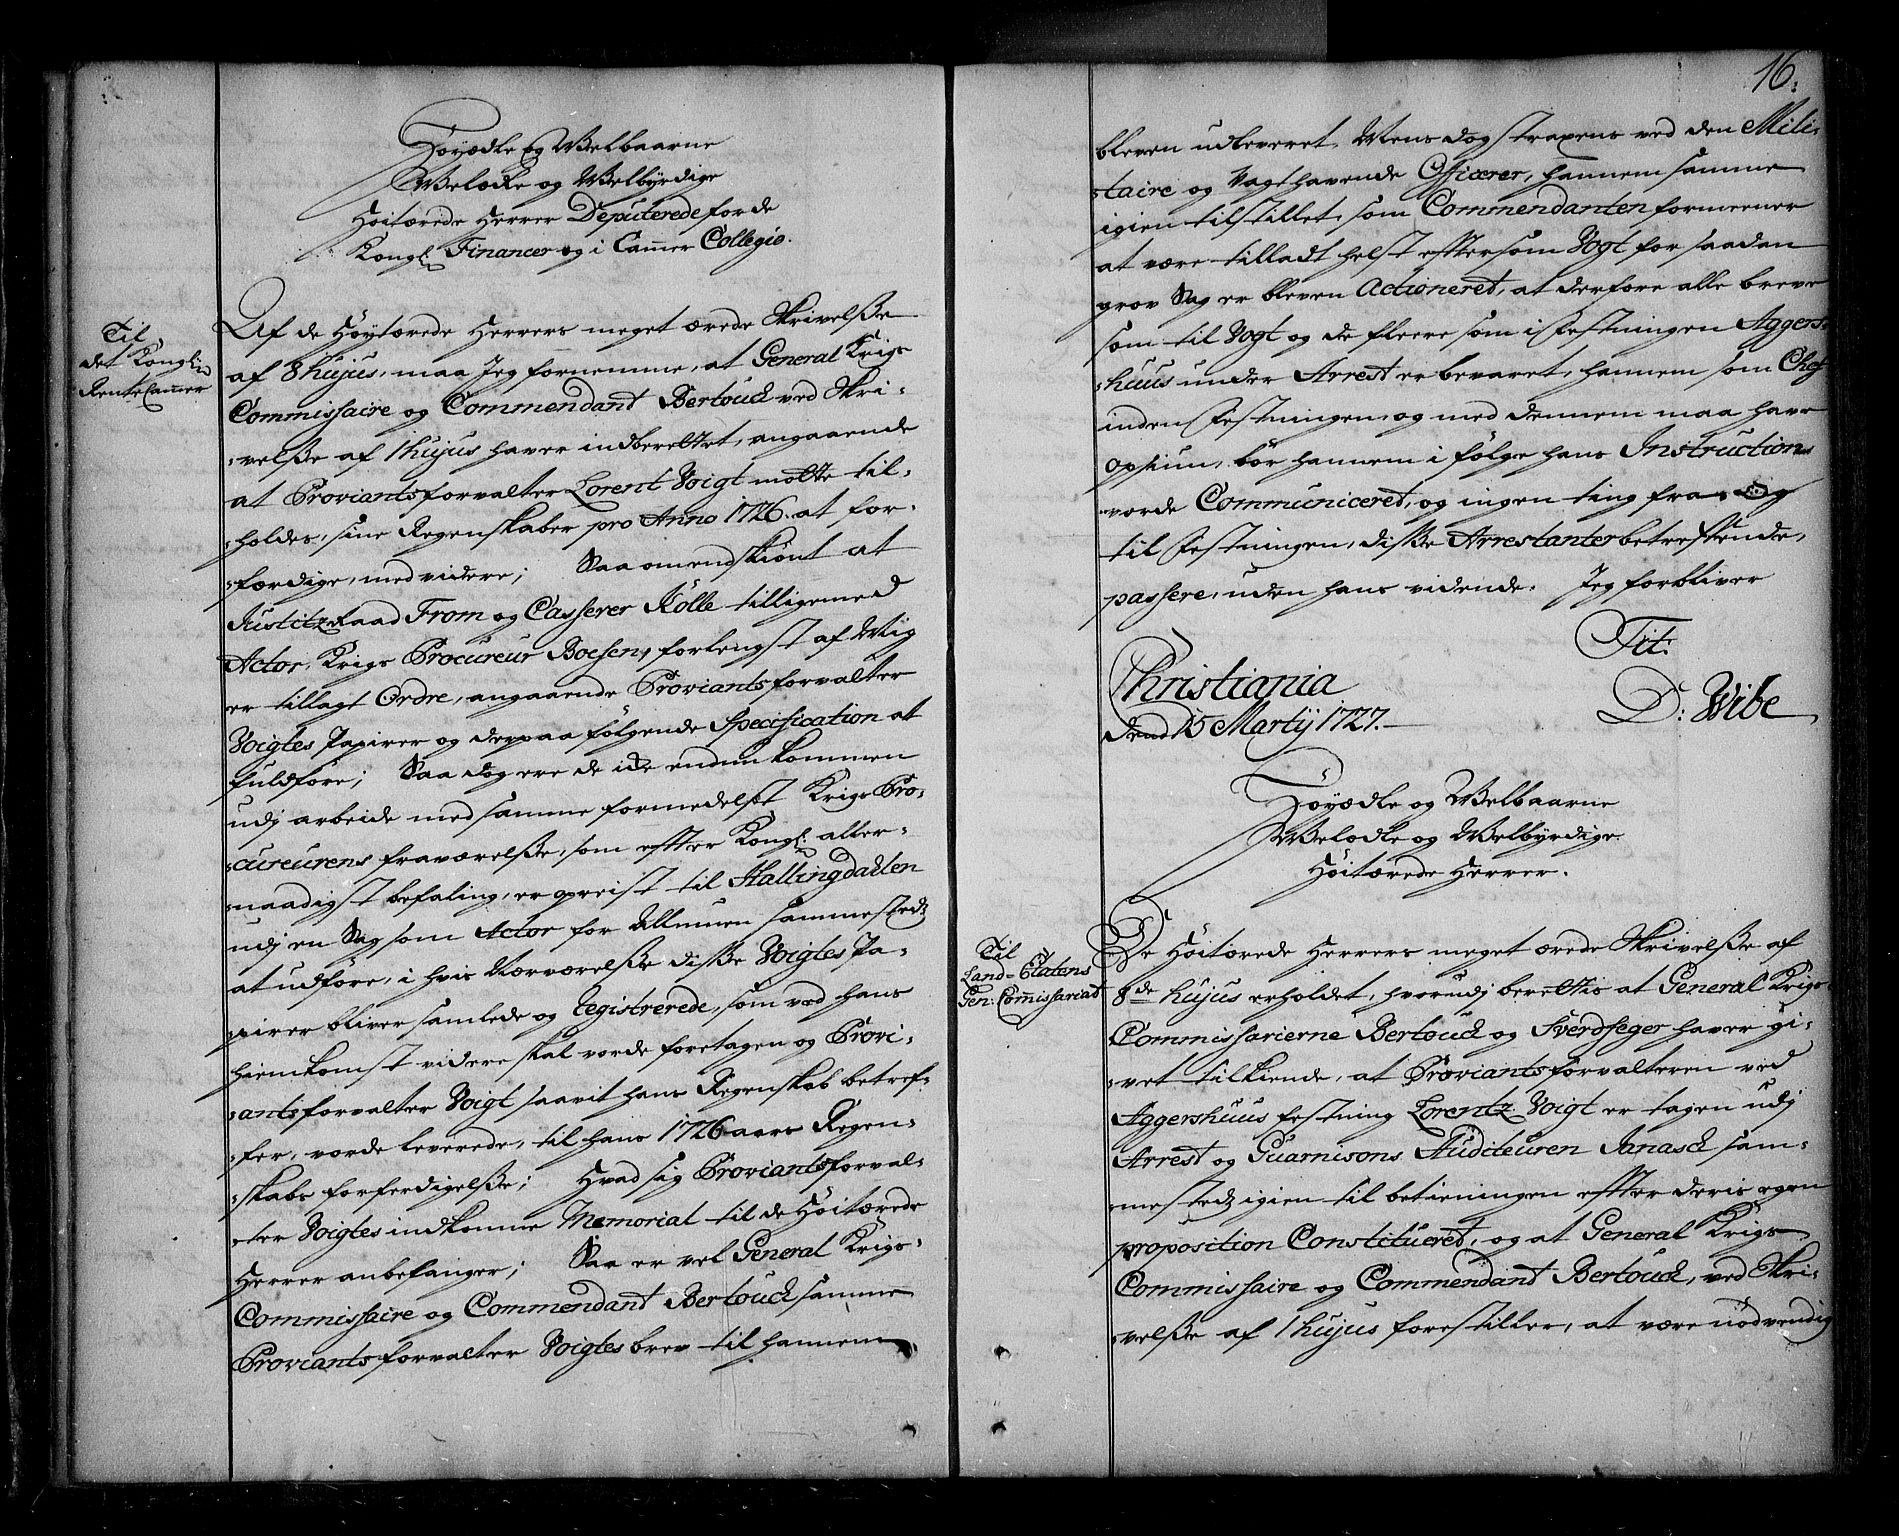 Høyædle og Welbaarne
Welædle og Welbyrdige
Høitærede Herrer Deputerede for de
Kongl: Financer og i Cammer Collegio.
Til
det Kongl:
Rente Cammer
Af de Høytærede Herrers meget ærede Skrivelße
af 8 hujus, maa Jeg fornemme, at General Krigs
Commissaire og Commendant Bertouch ved Skri-
velße af 1 hujus haver indberettet, angaaende
at Proviantsforvalter Lorent Voigt motte til-
holdes, sine Regenskaber pro Anno 1726. at for-
færdige, med videre; Saa omendskiønt at
Justitz Raad From og Casserer Kølle tilligemed
Actor, Krigs Procureur Boesen, forlengst af Mig
er tillagt Ordre, angaaende Proviantsforvalter
Voigtes Papirer og derpaa følgende Specification at
fuldføre; Saa dog ere de ide endnu kommen
udj arbeide med samme formedelst Krigs Pro-
cureurens fraværelße, som efter Kongl: aller-
naadigst befaling, er opreist til Hallingdahlen
udj en Sag som Actor for Allmuen sammestedz
at udføre, i hvis Nærværelße disße Voigtes Pa-
pirer bliver samlede og Registrerede, som ved hans
hiemkomst videre skal vorde foretagen og Provi-
antsforvalter Voigt saavit hans Regenskab betref-
fer, vorde leverede, til hans 1726 aars Regen-
skabs forferdigelße; Hvad sig Proviantsforval-
ter Voigtes indkomne Memorial til de Høitærede
Herrer anbelanger; Saa er vel General Krigs-
Commissaire og Commendant Bertouch samme
Proviantsforvalter Voigtes brev til hannem
16.
bleven udleveret, Mens dog straxens ved den Mili-
taire og Vagthavende Officerer, hannem samme
igien tilstillet, som Commendanten formeener
at være tilladt helst eftersom Vogt for saadan
grov Sag er bleven Actioneret, at derfore alle breve
som til Vogt og de fleere som i Festningen Aggers-
huus under Arrest er bevaret, hannem som Chef
inden Festningen, og med dennem maa have
Opsiun, bør hannem i følge hans Instruction
vorde Communiceret, og ingen ting fra og
til Festningen, disße Arrestanter betreffende,
passere, uden hans vidende. Jeg forbliver
Tit:
Christiania
den 15 Martij 1727.
D: Wibe
Høyædle og Welbaarne
Welædle og Welbyrdige
Høitærede Herrer.
Til
Land-Etatens
Gen: Commissariat
De Høitærede Herrers meget ærede Skrivelße af
8de hujus erholdet, hvorudj berettis at General Krigs
Commissarierne Bertouch og Sverdfeger haver gi-
vet tilkiende, at Proviantsforvalteren ved
Aggershuus festning Lorentz Voigt er tagen udj
Arrest og Guarnisons Auditeuren Janasch sam-
mestedz igien til betieningen efter deris egen
proposition Constitueret, og at General Krigs
Commissaire og Commendant Bertouch, ved Skri-
velße af 1 hujus forestiller, at være nødvendig